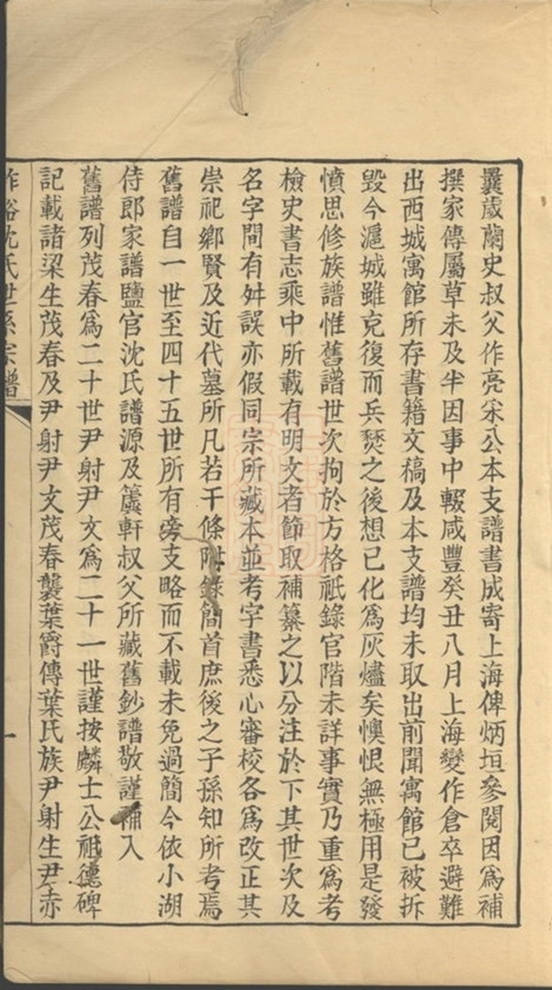 曩歲蘭史叔父作亮采公本支譜書成寄上海俾炳垣參閱因爲補
撰家傳屬草未及半因事中輟咸豐癸丑八月上海變作倉卒避難
出西城寓館所存書籍文稿及本支譜均未取出前聞寓館已被拆
毀今滬城雖克復而兵燹之後想已化爲灰燼矣懊恨無極用是發
憤思修族譜惟舊譜世次拘於方格祇錄官階未詳事實乃重爲考
檢史書志乘中所載有明文者節取補纂之以分注於下其世次及
名字間有舛誤亦假同宗所藏本並考字書悉心審校各爲改正其
崇祀鄉賢及近代墓所凡若干條附錄簡首庶後之子孫知所考焉
舊譜自一世至四十五世所有旁支略而不載未免過簡今依小湖
侍郎家譜鹽官沈氏譜源及簾軒叔父所藏舊鈔譜敬謹補入
舊譜列茂春爲二十世尹射尹文爲二十一世謹按麟士公祖德碑
記載諸梁生茂春及尹射尹文茂春襲葉爵傳葉氏族尹射生尹赤
沈氏世系宗譜
一